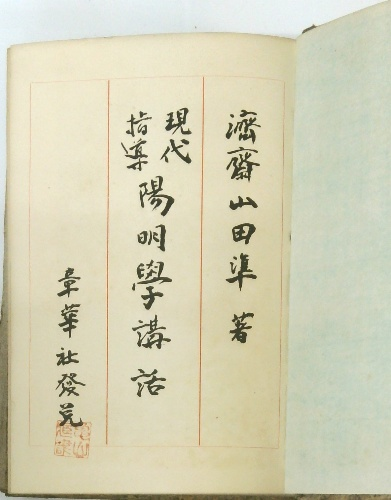 濟齋山田準著
現代指導陽明學講話
章華社發兌